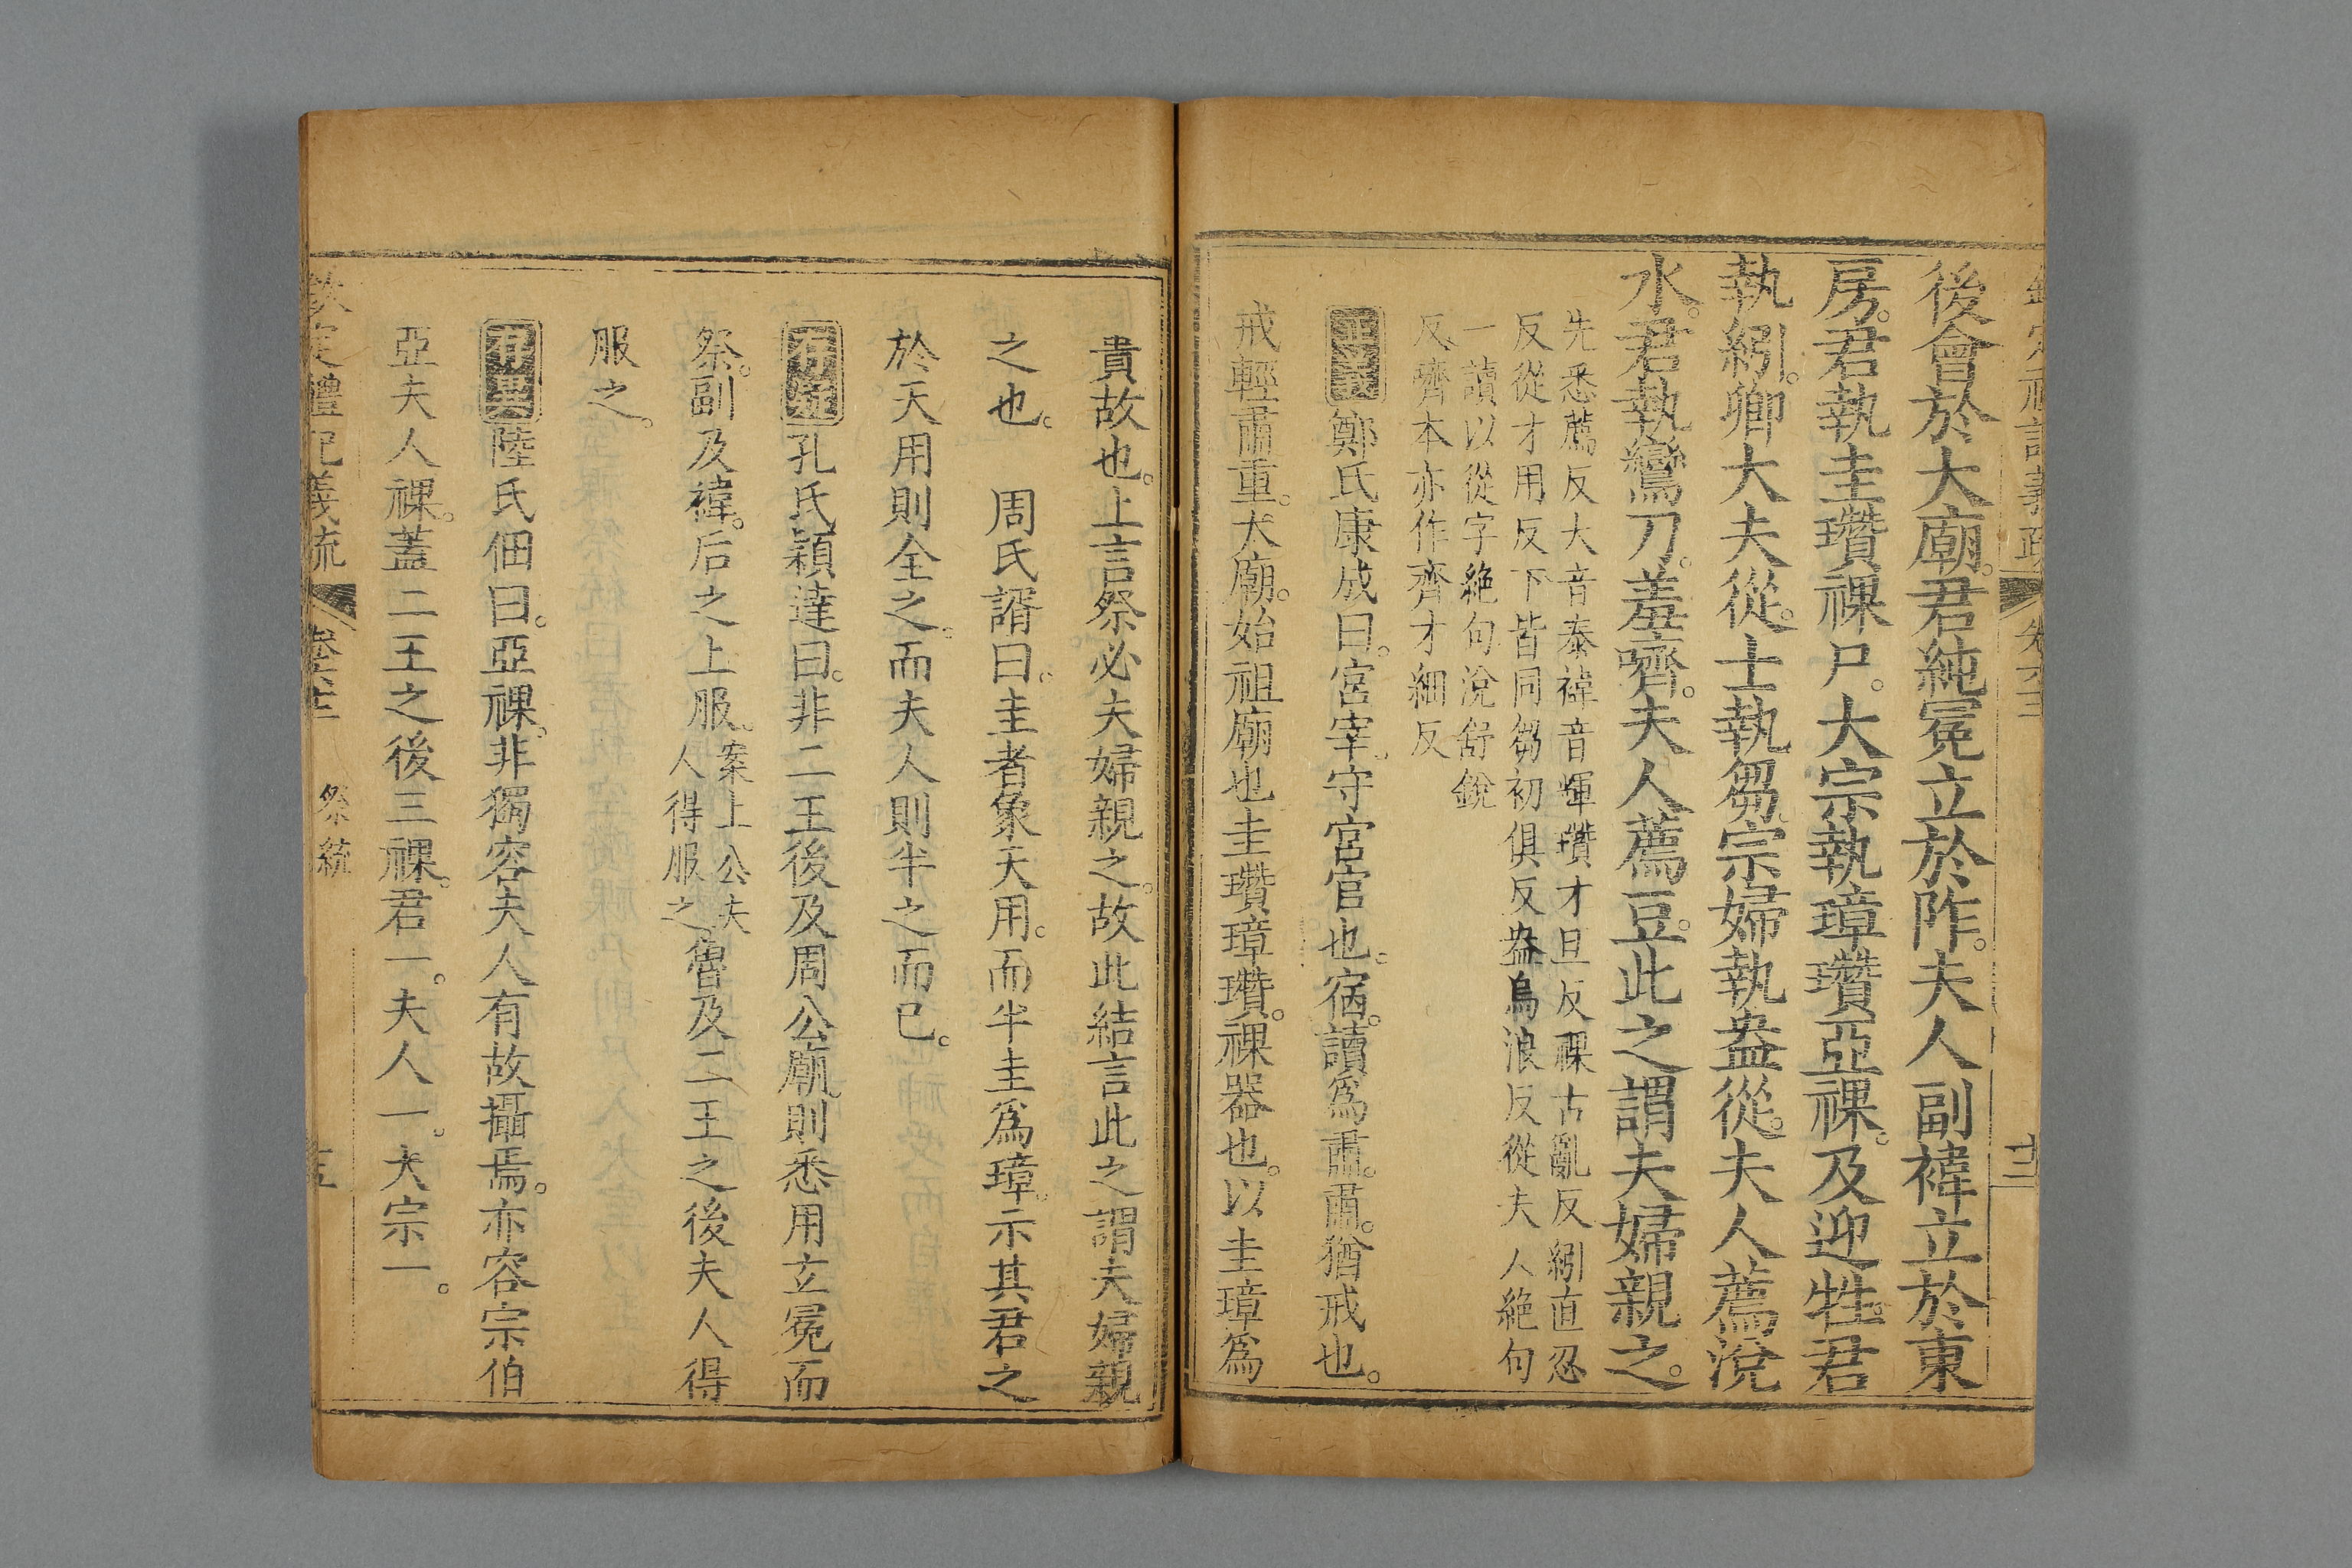 後會於大廟。君純冕立於阼。夫人副褘立於東
房。君執圭瓚祼尸。大宗執璋瓚亞祼。及迎牲。君
執紖。卿大夫從。士執芻。宗婦執盎從。夫人薦涗
水。君執鸞刀。羞嚌。夫人薦豆。此之謂夫婦親之。
先悉薦反大音泰褘音輝瓚才旦反祼古亂反紖直忍
反從才用反下皆同芻初俱反盎烏浪反從夫人絶句
一讀以從字絶句涗舒銳
反嚌本亦作齊才細反
鄭氏康成曰。宮宰。守宮官也。宿。讀爲肅。肅。猶戒也。
戒輕肅重。大廟。始祖廟也圭瓚璋瓚。祼器也。以圭璋爲
貴故也。上言祭必夫婦親之。故此結言此之謂夫婦親
之也。 周氏諝曰。圭者象天用。而半圭爲璋。示其君之
於天用則全之。而夫人則半之而已。
孔氏穎達曰。非二王後及周公廟。則悉用玄冕而
祭。副及褘。后之上服。案上公夫人得服之魯及二王之後夫人得
服之。
陸氏佃曰。亞祼。非獨容夫人有故攝焉。亦容宗伯
亞夫人祼。蓋二王之後三祼。君一。夫人一。大宗一。
欽定禮記義疏 卷六十三 祭統